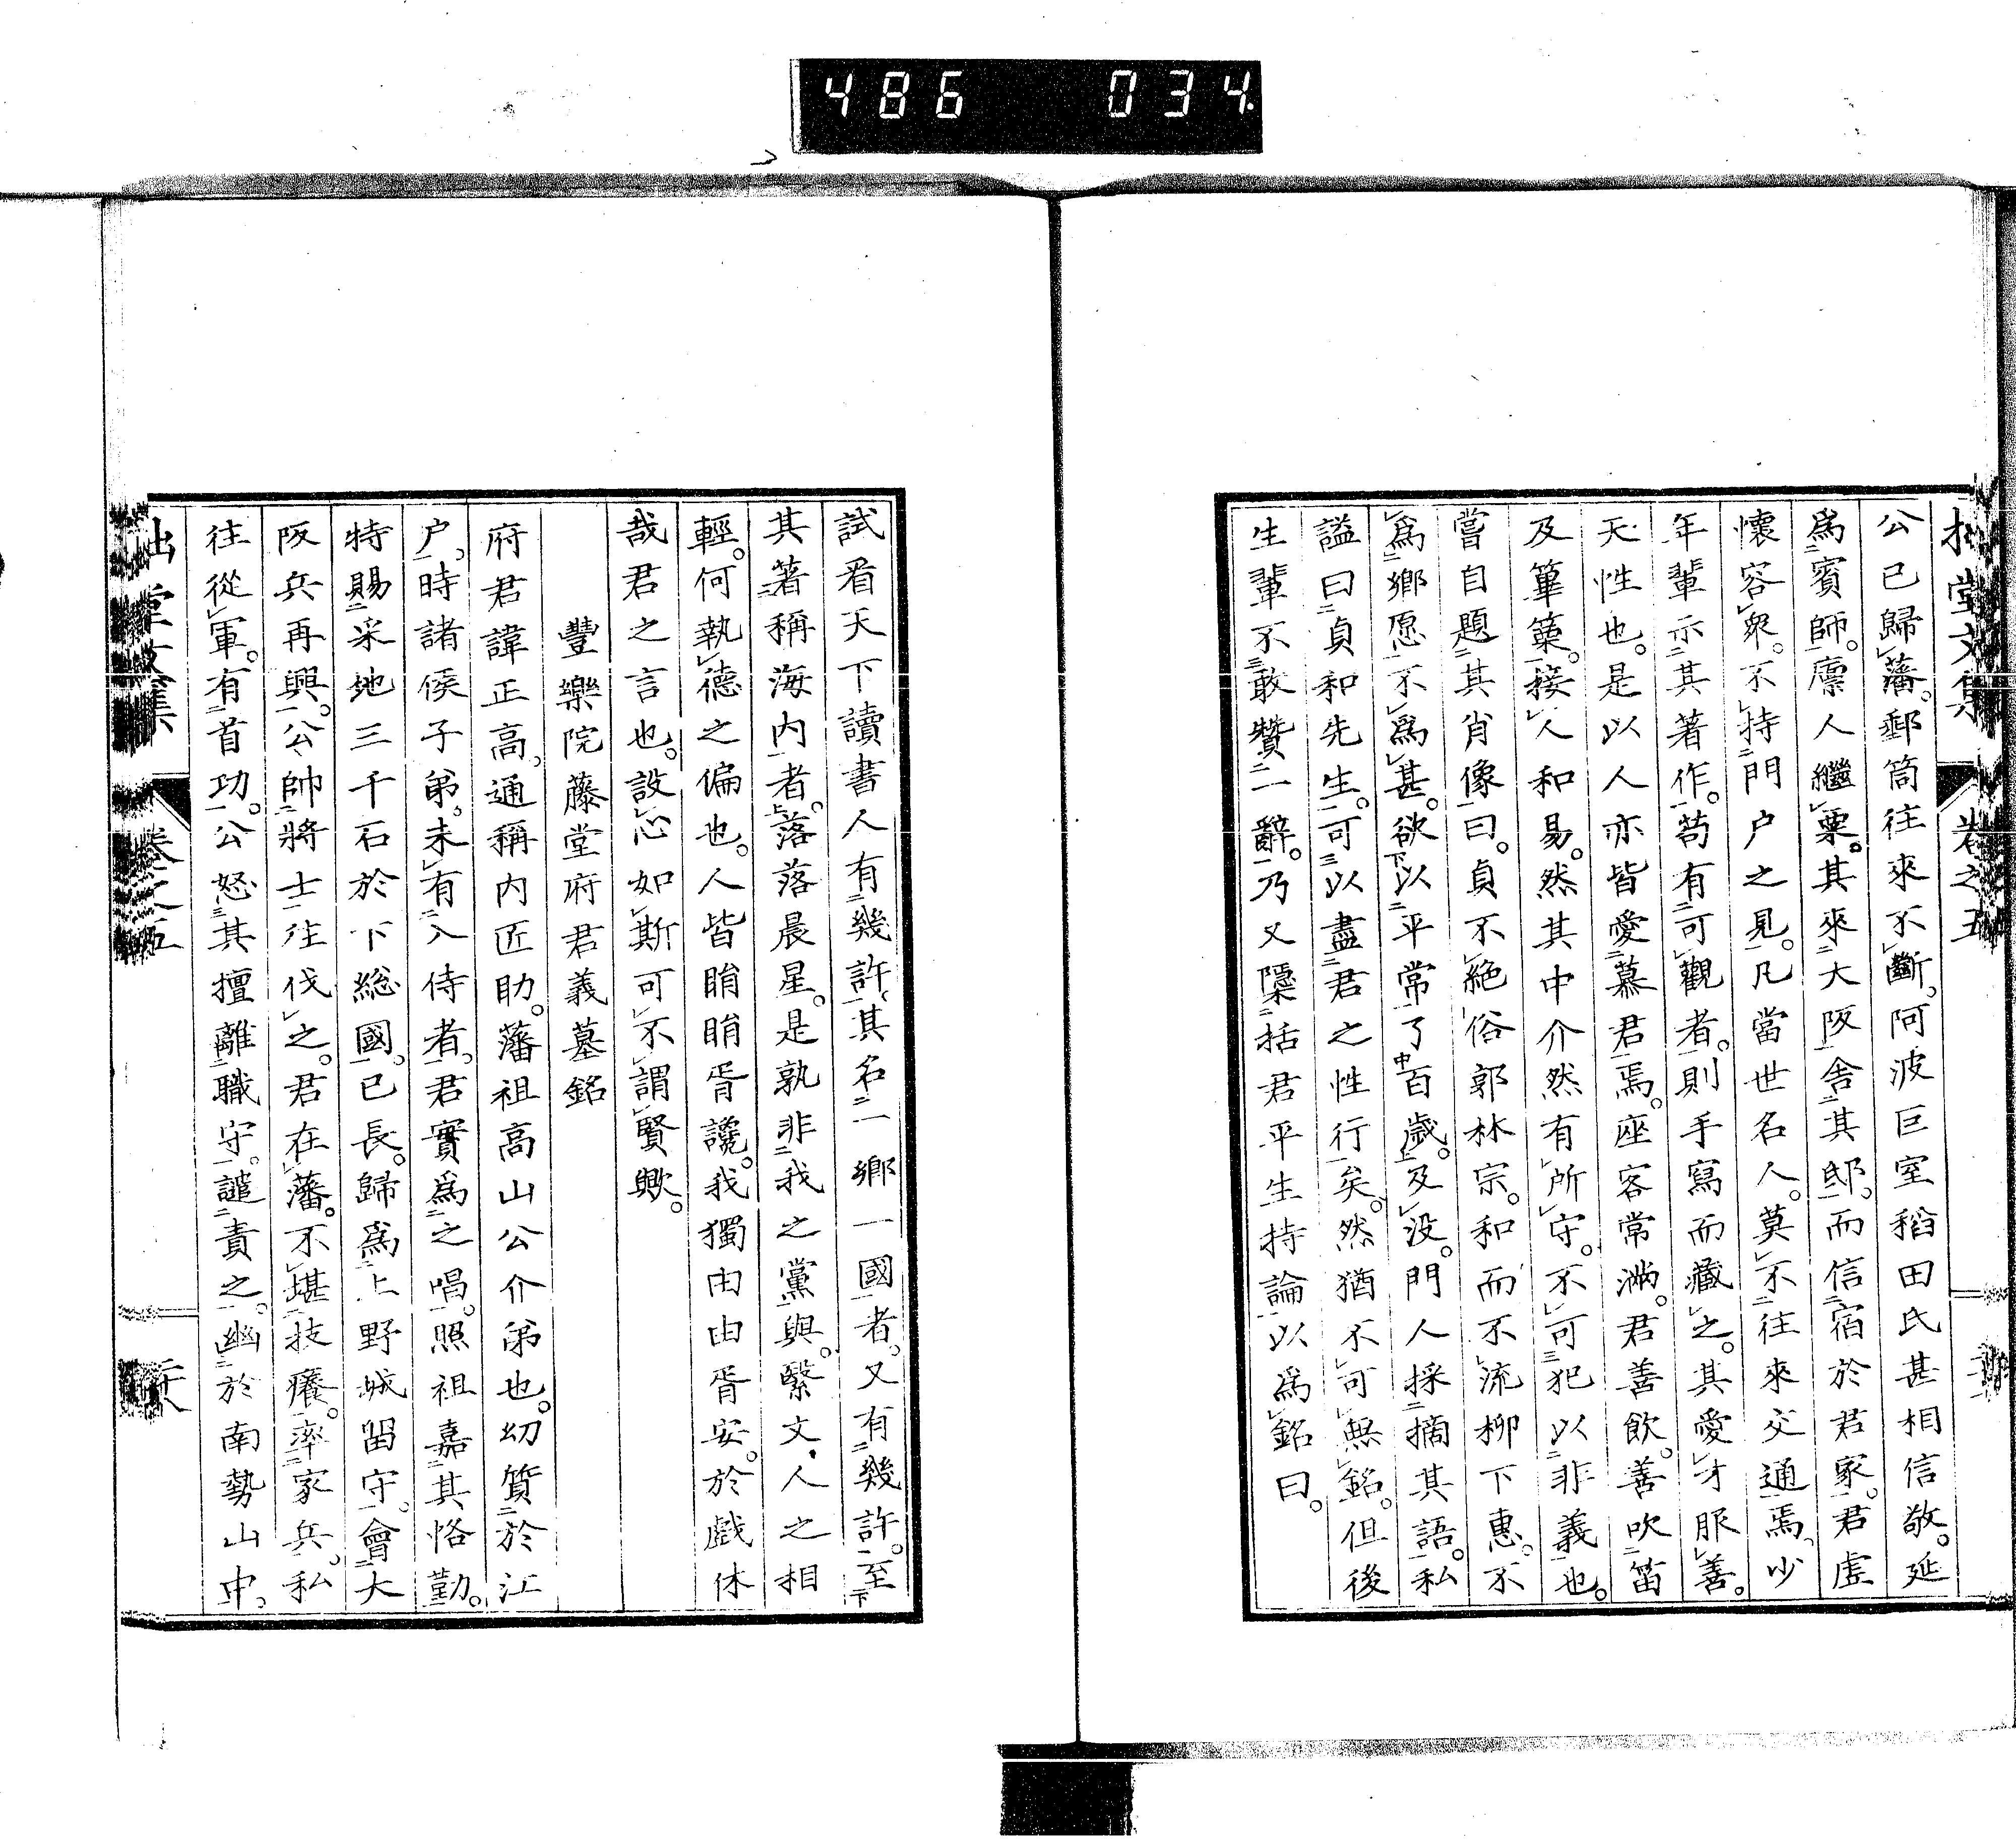 486 034.
拙堂文集 卷之五
公已歸藩。郵筒往來不斷。阿波巨室稻田氏甚相信敬。延
爲賓師。廩人繼粟。其來大阪。舍其邸。而信宿於君家。君虛
懷容衆。不持門户之見。凡當世名人。莫不往來交通焉。少
年輩示其著作。苟有可觀者。則手寫而藏之。其愛才服善。
天性也。是以人亦皆愛慕君焉。座客常滿。君善飲。善吹笛
及篳篥。接人和易。然其中介然有所守。不可犯以非義也。
嘗自題其肖像曰。貞不絶俗郭林宗。和而不流柳下惠。不
爲鄉愿不爲甚。欲以平常了百歲。及沒。門人採摘其語。私
謚曰貞和先生。可以盡君之性行矣。然猶不可無銘。但後
生輩不敢贊一辭。乃又隱括君平生持論。以爲銘曰。
試看天下讀書人有幾許。其名一鄉一國者。又有幾許。至
其著稱海内者。落落晨星。是孰非我之黨與。繄文人之相
輕。何執德之偏也。人皆睊睊胥讒。我獨由由胥安。於戲休
哉君之言也。設心如斯可不謂賢歟。
豐樂院藤堂府君義墓銘
府君諱正高。通稱内匠助。藩祖高山公介弟也。幼質於江
户。時諸侯子弟。未有入侍者。君實爲之唱。照祖嘉其恪勤。
特賜采地三千石於下総國。已長。歸爲上野城留守。會大
阪兵再興。公帥將士往伐之。君在藩。不堪技癢。率家兵。私
往從軍。有首功。公怒其擅離職守。譴責之。幽於南勢山中。
拙堂文集 卷之五